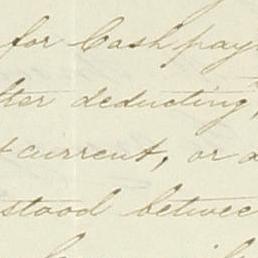 for Cash pay
tter deducting,
t current, or a
stood betwee